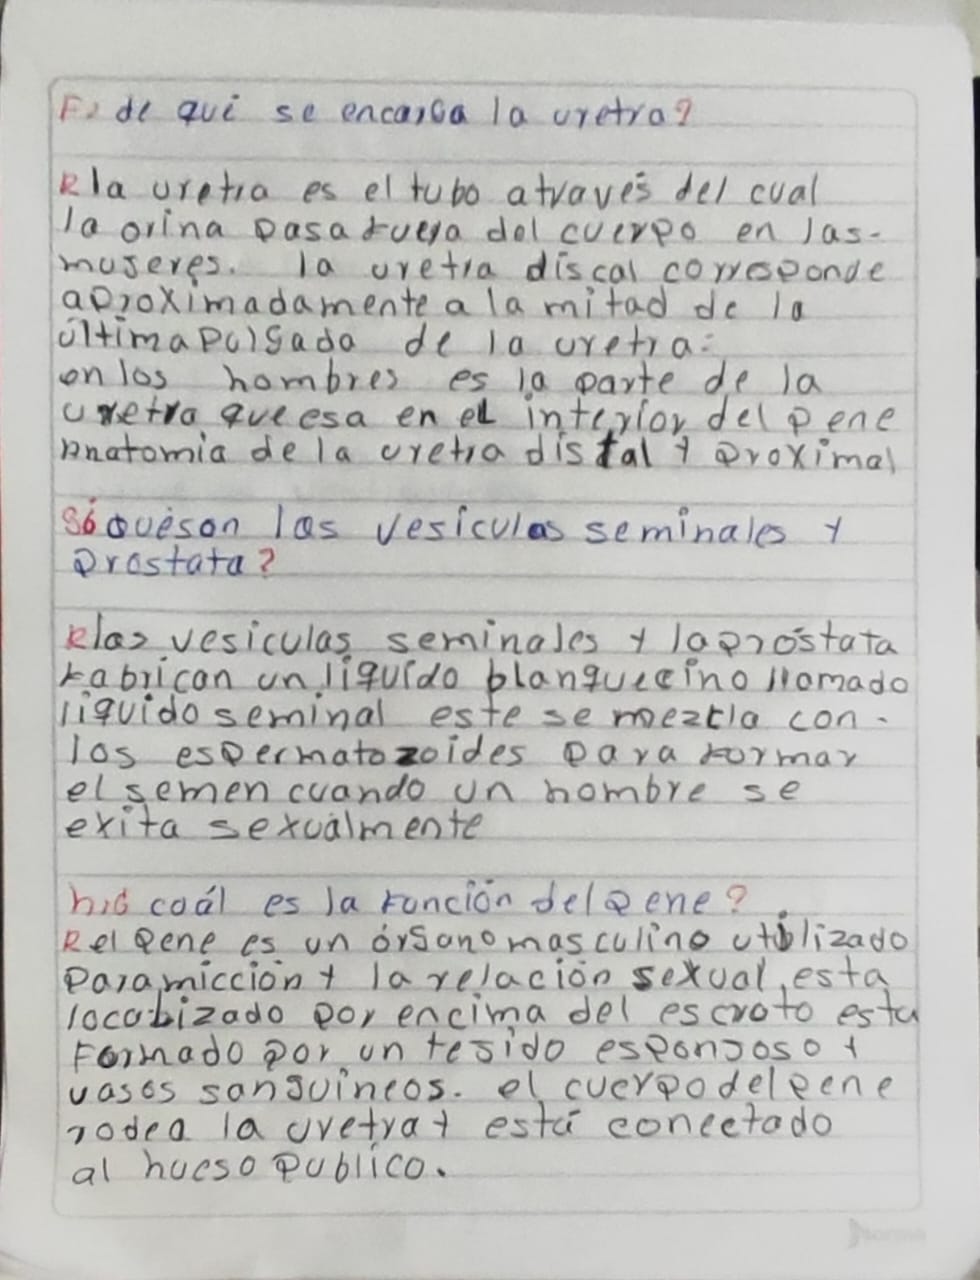 F) de qué se encarga la uretra?
R la uretra es el tubo através del cual
la orina pasa fuera del cuerpo en las-
mujeres. la uretra discal corresponde
aproximadamente a la mitad de la
última pulgada de la uretra:
en los hombres es la parte de la
uretra que esa en el interior del pene
Anatomia de la uretra distal y proximal
qué son las vesiculas seminales y
prostata?
R las vesiculas seminales y la próstata
fabrican un liquído blanquecino llamado
liquido seminal este se mezcla con -
los espermatozoides para formar
el semen cuando un hombre se
exita sexualmente
coál es la función del pene?
R el pene es un órgano masculino utilizado
para micción y la relación sexual, esta
locabizado por encima del escroto esta
Formado por un tesido esponjoso y
vasos sanguineos. el cuerpo del pene
rodea la uretra y está conectado
al hueso publico.